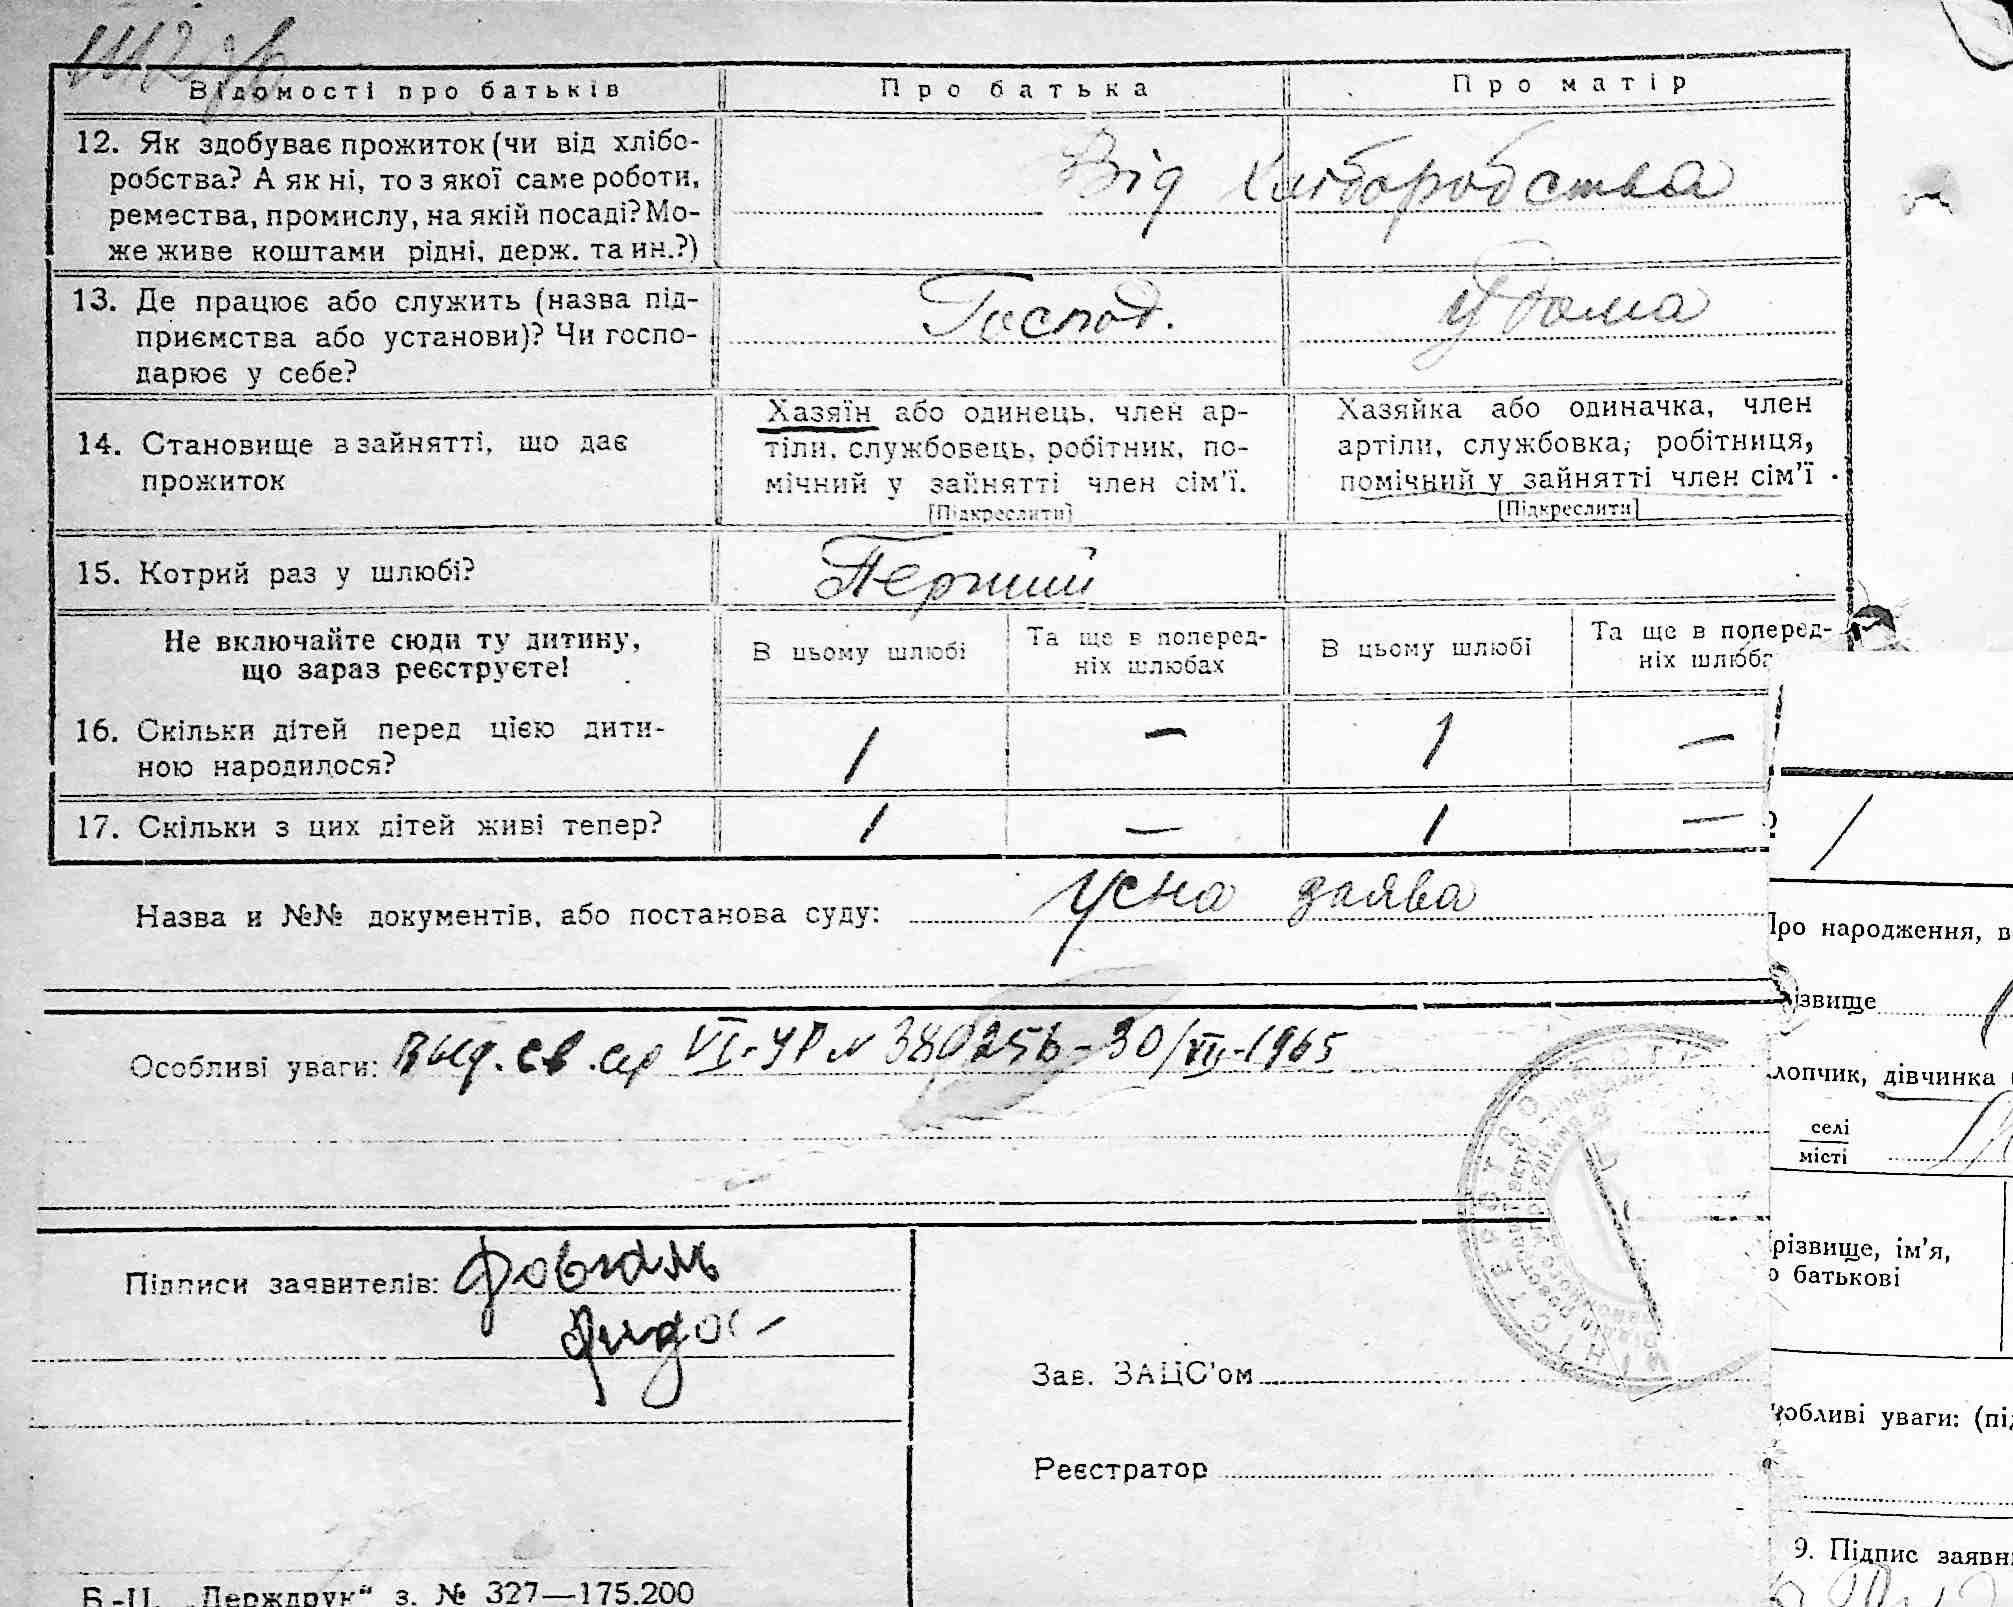 Відомості про батьків
Про батька
Про матір
12. Як здобуває прожиток (чи від хлібо-
робства? А як ні, то з якої саме роботи,
ремества, промислу, на якій посаді? Мо-
же живе коштами рідні, держ. та ин.?)
Від хліборобства
13. Де працює або служить (назва під-
приємства або установи)? Чи госпо-
дарює у себе?
Господ.
У дома
14. Становище в зайнятті, що дає
прожиток
Хазяїн або одинець, член ар-
тіли, службовець, робітник, по-
мічний у зайнятті член сім'ї.
[Підкреслити]
Хазяйка або одиначка, член
артіли, службовка, робітниця,
помічний у зайнятті член сім'ї.
[Підкреслити]
15. Котрий раз у шлюбі?
Перший
Не включайте сюди ту дитину,
що зараз реєструєте!
В цьому шлюбі
Та ще в поперед-
ніх шлюбах
В цьому шлюбі
Та ще в поперед-
ніх шлюба
16. Скільки дітей перед цією дити-
ною народилося?
1 — 1 —
17. Скільки з цих дітей живі тепер?
1 — 1 —
Назва и №№ документів, або постанова суду: Усна заява
Особливі уваги: Выд. св. сер VI-УР № 380256 - 30/VII-1965
Підписи заявителів:
Зав. ЗАЦС'ом
Реєстратор
Б.-Ц. „Держдрук“ з. № 327—175.200
Про народження, в
ізвище
лопчик, дівчинка (
селі
місті
різвище, ім'я,
о батькові
обливі уваги: (під
9. Підпис заявн